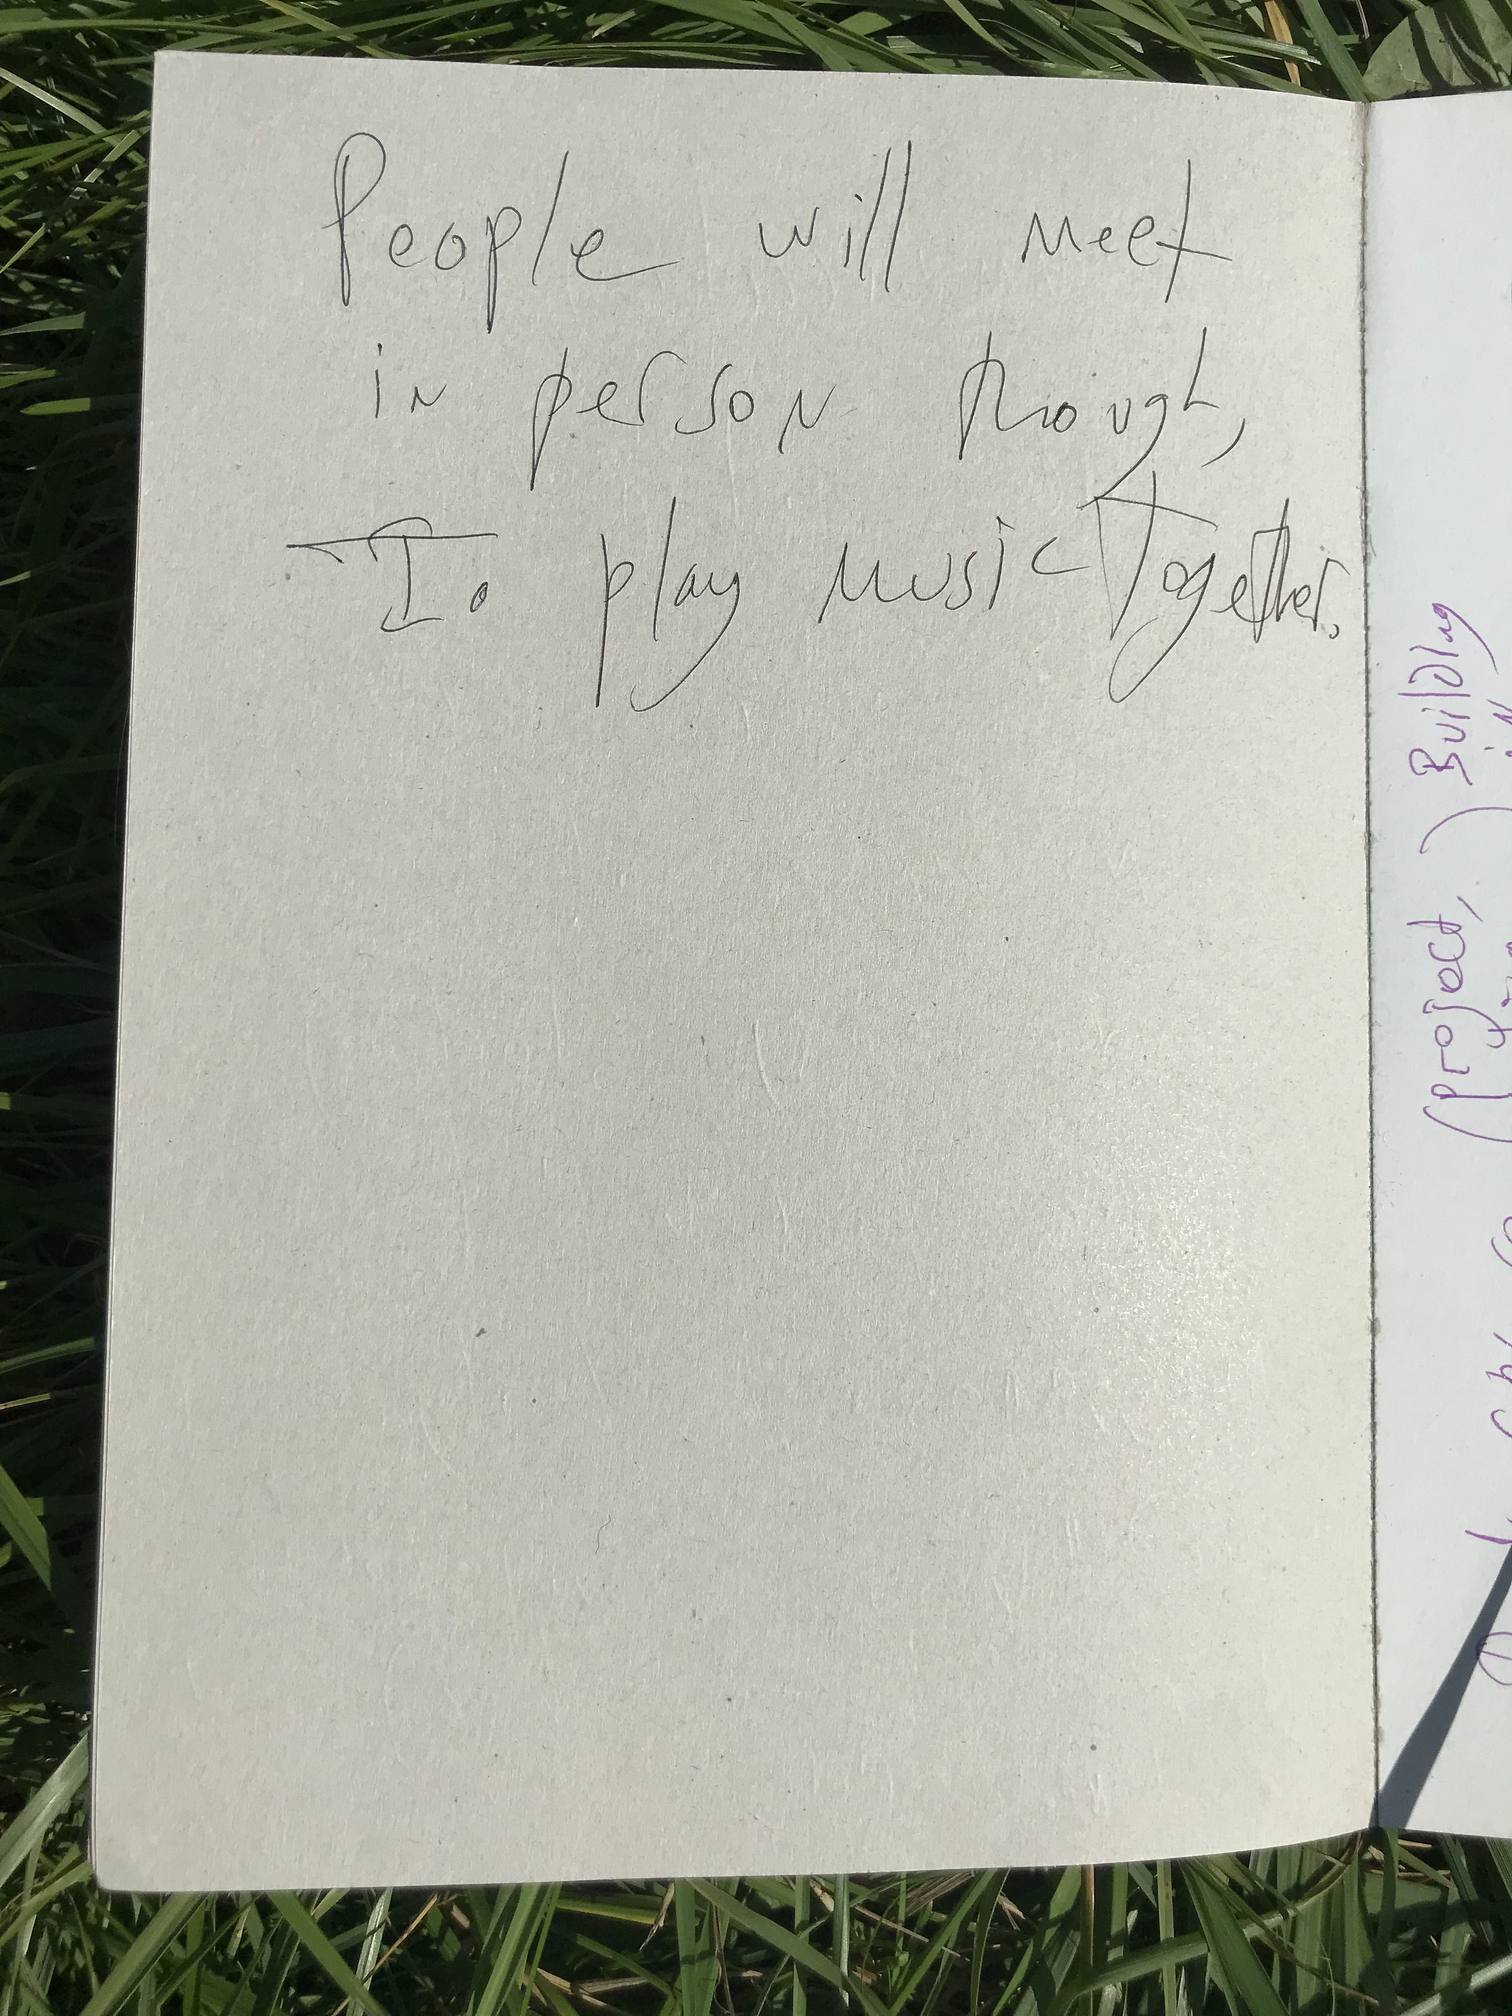 People will meet
in person though,
To play music Together.
(project,) Building